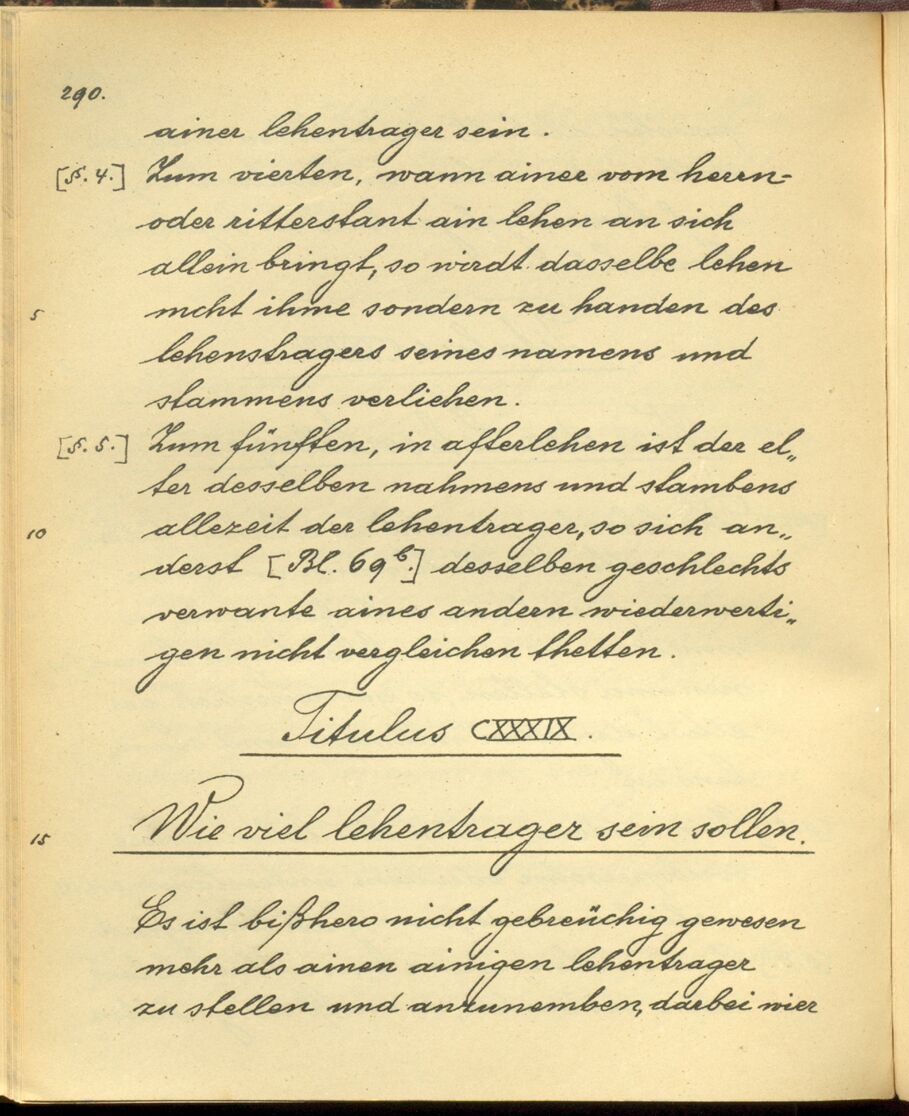 290.
ainer lehentrager sein.
[§. 4.] Zum vierten, wann ainer vom herrn-
oder ritterstant ain lehen an sich
allein bringt, so wirdt dasselbe lehen
5 nicht ihme sondern zu handen des
lehenstragers seines namens und
stammens verliehen.
[§. 5.] Zum fünften, in afterlehen ist der el„
ter desselben nahmens und stambens
10 allezeit der lehentrager, so sich an„
derst [Bl. 69b.] desselben geschlechts
verwante aines andern wiederwerti„
gen nicht vergleichen thetten.
Titulus CXXXIX.
15 Wie viel lehentrager sein sollen.
Es ist bißhero nicht gebreüchig gewesen
mehr als ainen ainigen lehentrager
zu stellen und anzunemben, darbei wier